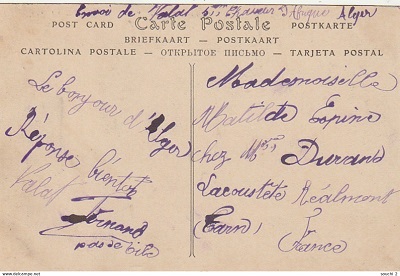 Envoi de Valat 5me Chasseur d'Afrique Alger
POST CARD Carte Postale POSTKARTE
BRIEFKAART — POSTKAART
CARTOLINA POSTALE — ОТКРЫТОЕ ПИСЬМО — TARJETA POSTAL
Le bonjour d'Alger
Réponse bientôt
Valat
Fernand
pas de
Mademoiselle
Matilde Espine
chez Mr
Durand
Lacoustète Réalmont
Tarn
France